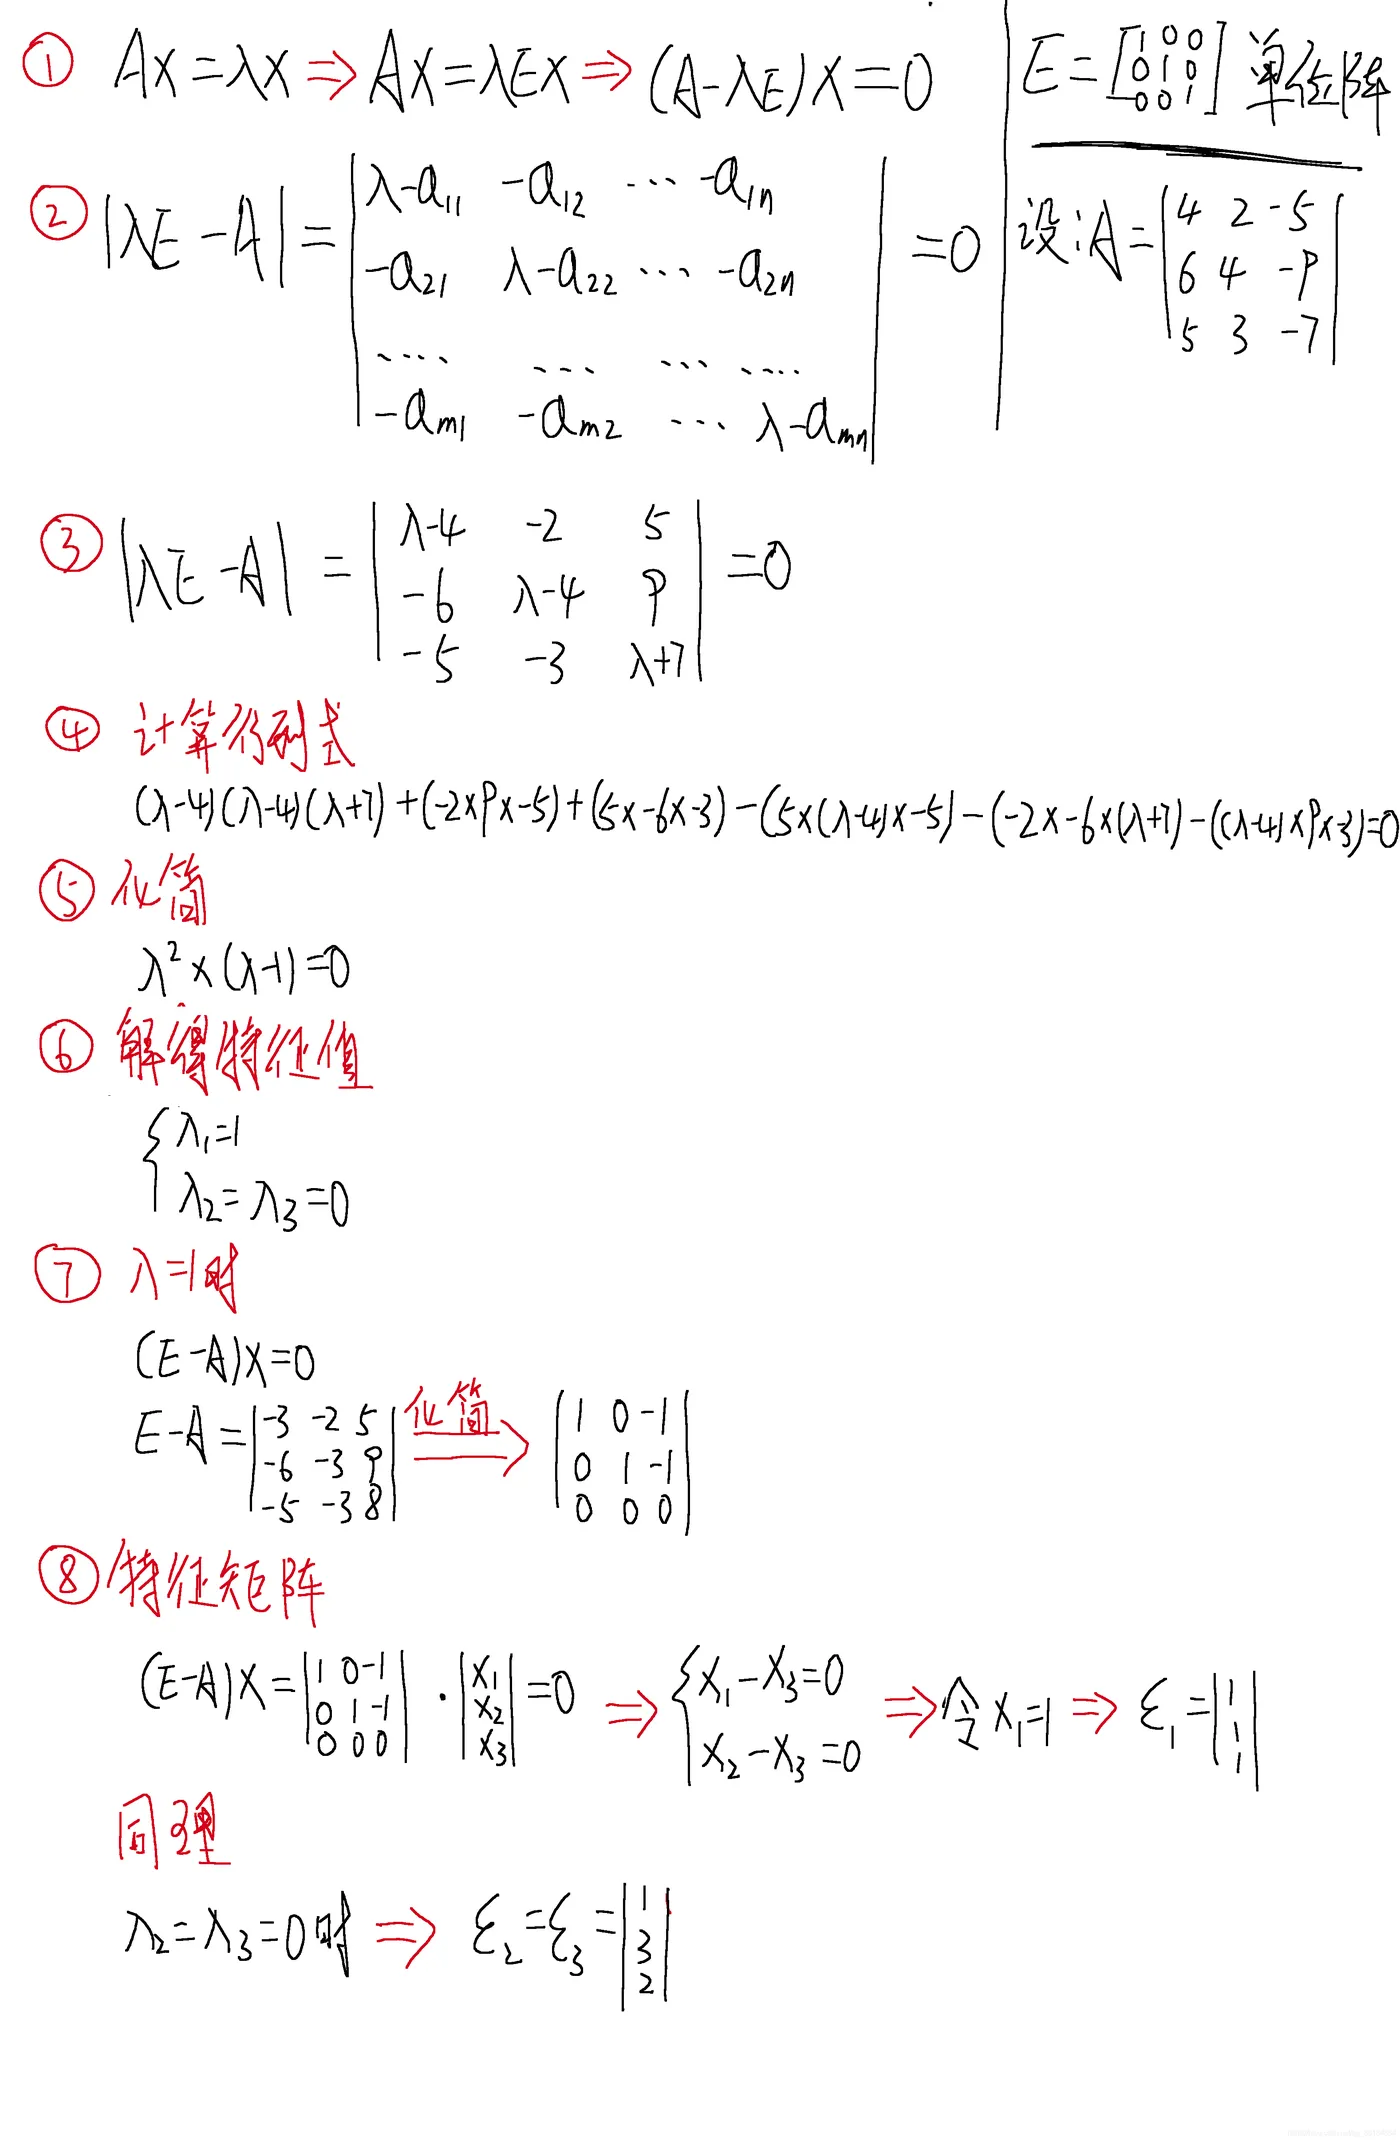 ① AX=λX⇒AX=λEX⇒(A-λE)X=0
E=[1 0 0
0 1 0
0 0 1] 单位阵
② |λE-A|=|λ-a11 -a12 … -a1n
-a21 λ-a22 … -a2n
…. … … ….
-am1 -am2 … λ-amn|=0
设:A=|4 2 -5
6 4 -9
5 3 -7|
③ |λE-A| = |λ-4 -2 5
-6 λ-4 9
-5 -3 λ+7|=0
④ 计算行列式
(λ-4)(λ-4)(λ+7)+(-2×9×-5)+(5×-6×-3)-(5×(λ-4)×-5)-(-2×-6×(λ+7)-((λ-4)×9×-3)=0
⑤ 化简
λ²×(λ-1)=0
⑥ 解得特征值
{λ1=1
λ2=λ3=0
⑦ λ=1时
(E-A)X=0
E-A=|-3 -2 5
-6 -3 9
-5 -3 8| 化简⇒ |1 0 -1
0 1 -1
0 0 0|
⑧ 特征矩阵
(E-A)X=|1 0 -1
0 1 -1
0 0 0|·|X1
X2
X3|=0⇒{X1-X3=0
X2-X3=0⇒令X1=1⇒ξ1=|1
1
1|
同理
λ2=λ3=0时⇒ξ2=ξ3=|1
3
2|